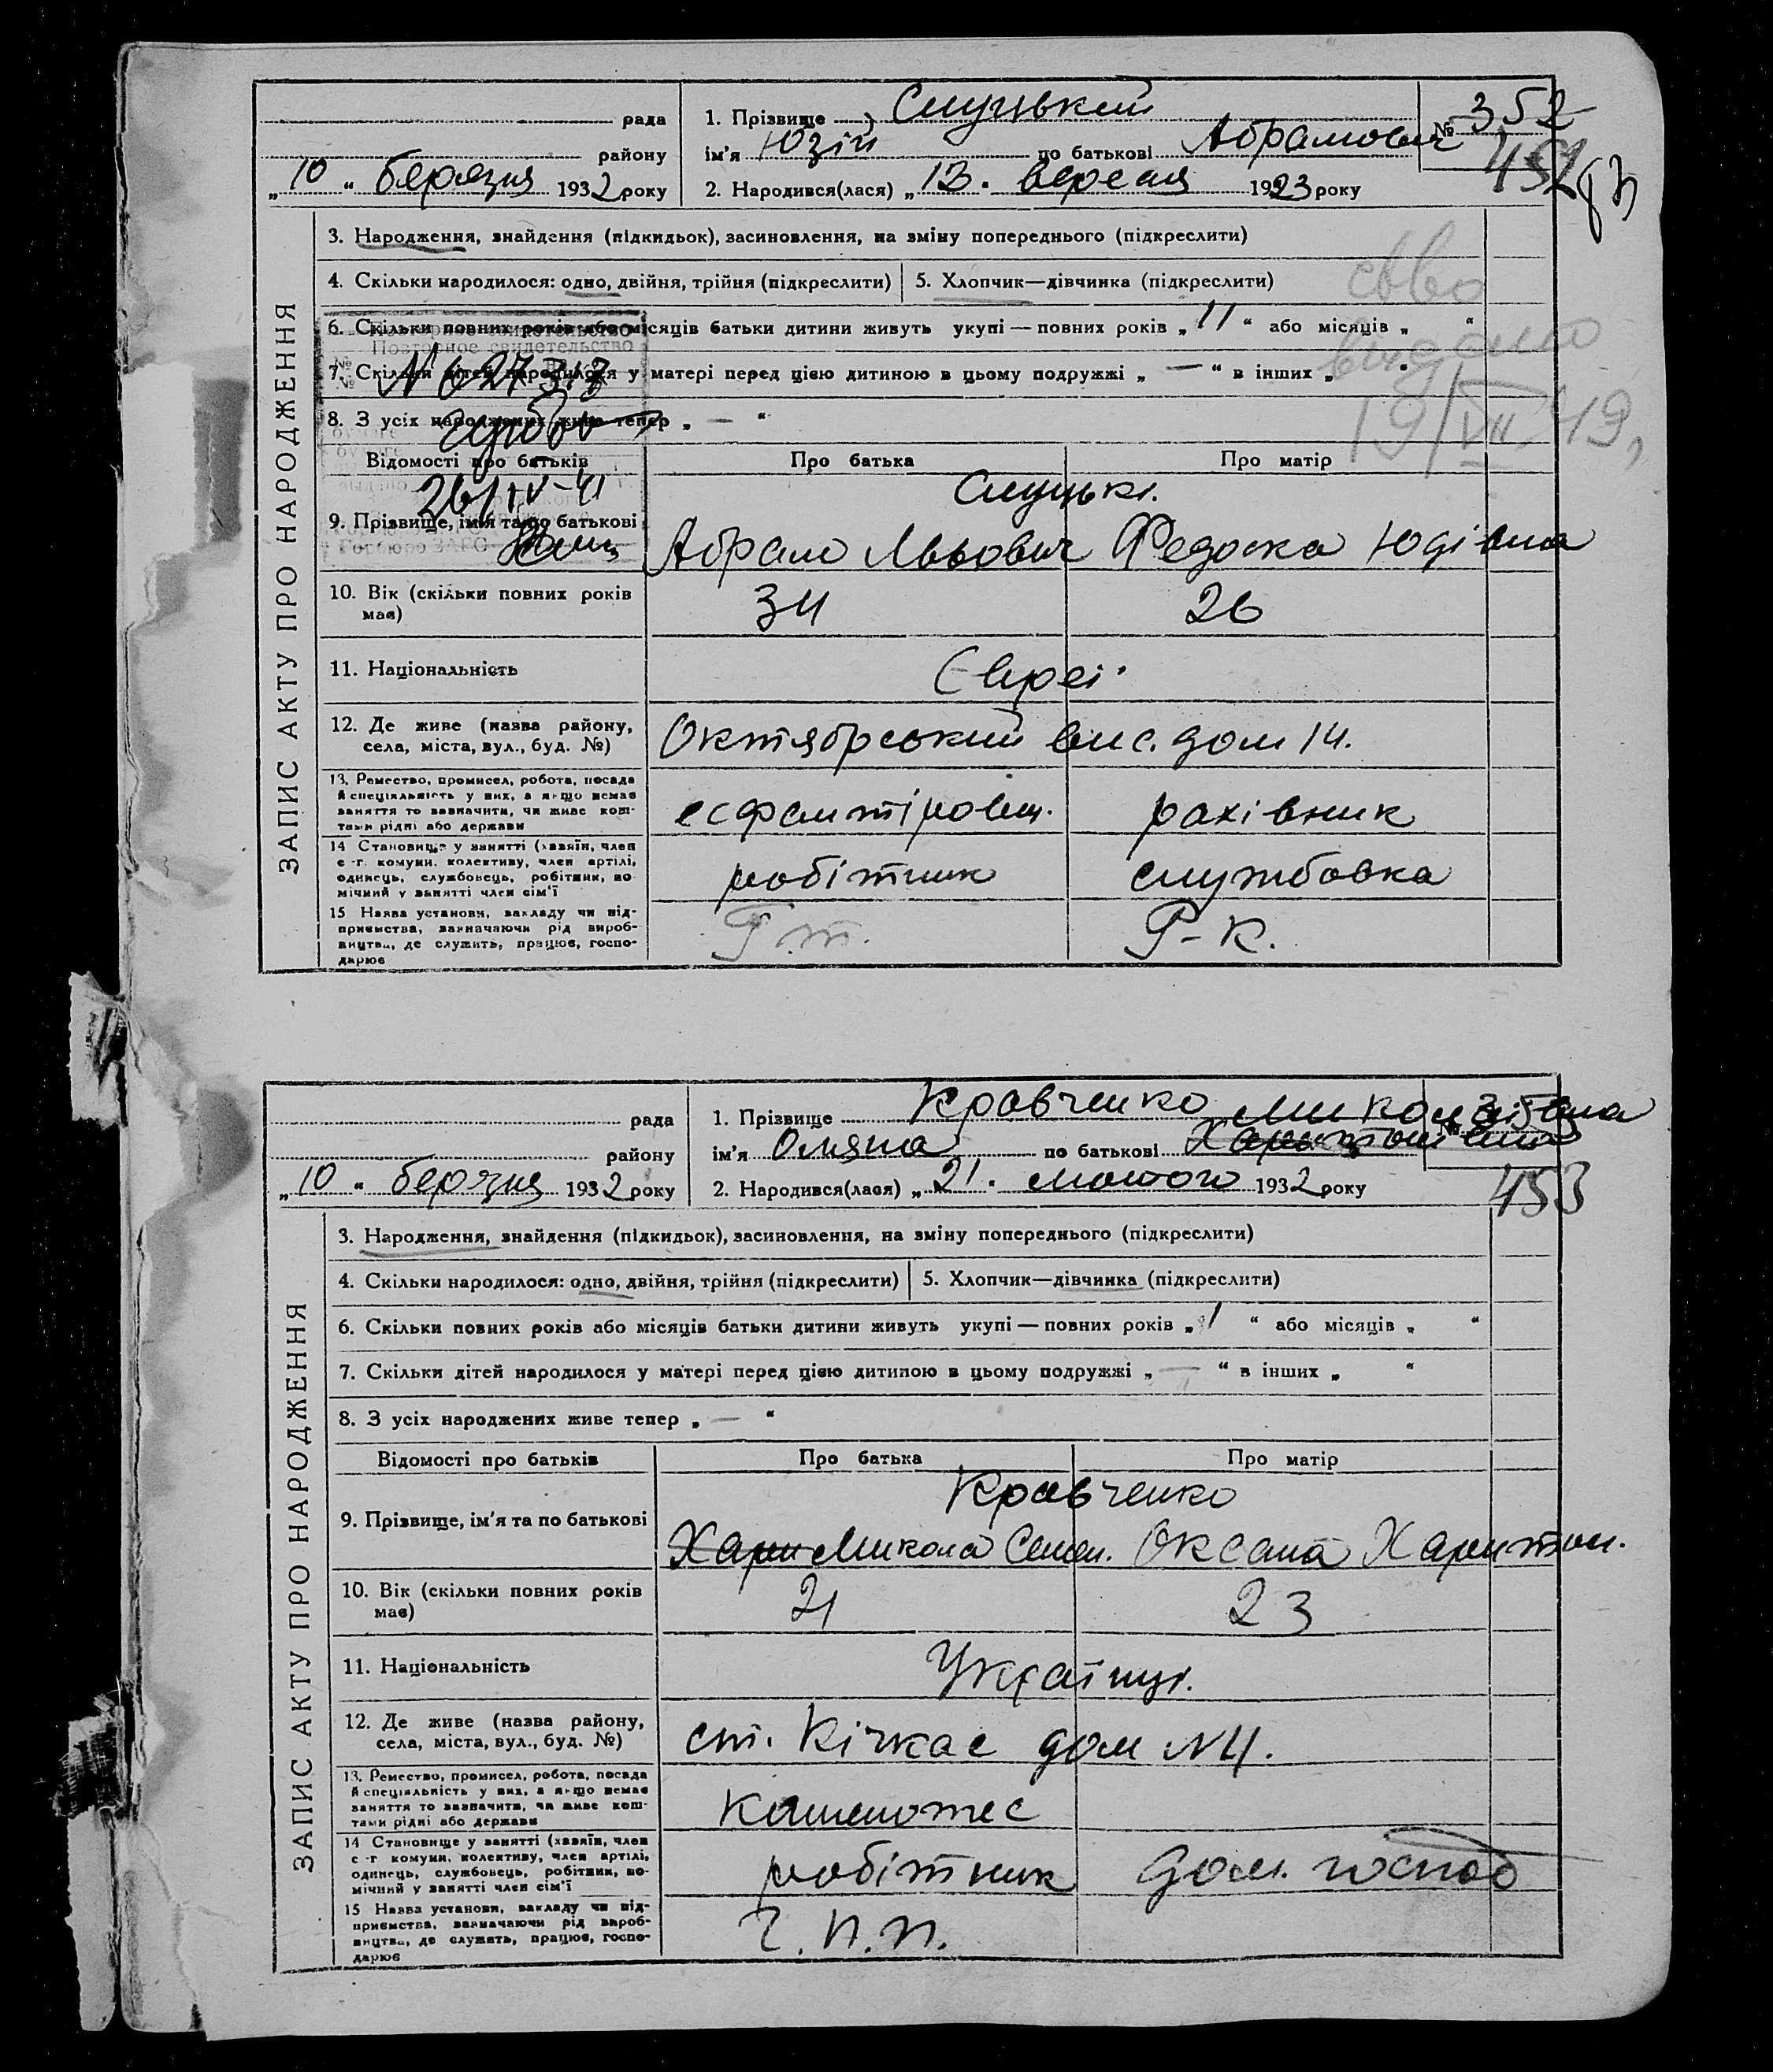 рада
району
„10“ березня 1932 року
1. Прізвище Слуцький
ім'я Юзій по батькові Абрамович
2. Народився(лася) „13. вересня 1923 року
№ 352
452
ЗАПИС АКТУ ПРО НАРОДЖЕННЯ
3. Народження, знайдення (підкидьок), засиновлення, на зміну попереднього (підкреслити)
4. Скільки народилося: одно, двійня, трійня (підкреслити)
5. Хлопчик—дівчинка (підкреслити)
6. Скільки повних років або місяців батьки дитини живуть укупі — повних років „11“ або місяців „ “
7. Скільки дітей народилося у матері перед цією дитиною в цьому подружжі „—“ в інших „ “
8. З усіх народжених живе тепер „—“
Повторное свидетельство
№ 627313
26/IV-41
Горбюро ЗАГС
свво
видано
19/VII 49,
Відомості про батьків
Про батька
Про матір
Слуцькі.
9. Прізвище, ім'я та по батькові
Абрам Львович
Федоска Юдівна
10. Вік (скільки повних років має)
34
26
11. Національність
Євреї
12. Де живе (назва району, села, міста, вул., буд. №)
Октябрський вис. дом 14.
13. Ремество, промисел, робота, посада
й спеціяльність у них, а якщо немає
заняття то зазначити, чи живе кош-
тами рідні або держави
рахівник
14 Становище у занятті (хазяїн, член
с.-г. комуни, колективу, член артілі,
одинець, службовець, робітник, по-
мічний у занятті член сім'ї
робітник
службовка
15 Назва установи, закладу чи під-
приємства, зазначаючи рід вироб-
ництва, де служить, працює, госпо-
дарює
Р-К.
рада
району
„10“ березня 1932 року
1. Прізвище Кравченко
Миколаївна
ім'я Оляна по батькові Харитонівна
2. Народився(лася) „21. лютого 1932 року
453
ЗАПИС АКТУ ПРО НАРОДЖЕННЯ
3. Народження, знайдення (підкидьок), засиновлення, на зміну попереднього (підкреслити)
4. Скільки народилося: одно, двійня, трійня (підкреслити)
5. Хлопчик—дівчинка (підкреслити)
6. Скільки повних років або місяців батьки дитини живуть укупі — повних років „1“ або місяців „ “
7. Скільки дітей народилося у матері перед цією дитиною в цьому подружжі „—“ в інших „ “
8. З усіх народжених живе тепер „—“
Відомості про батьків
Про батька
Про матір
Кравченко
9. Прізвище, ім'я та по батькові
Хари Микола Семен.
Оксана Харитон.
10. Вік (скільки повних років має)
21
23
11. Національність
Українці.
12. Де живе (назва району, села, міста, вул., буд. №)
ст. Кічкас дом №4.
13. Ремество, промисел, робота, посада
й спеціяльність у них, а якщо немає
заняття то зазначити, чи живе кош-
тами рідні або держави
Каменотес
14 Становище у занятті (хазяїн, член
с.-г. комуни, колективу, член артілі,
одинець, службовець, робітник, по-
мічний у занятті член сім'ї
робітник
дом. господ
15 Назва установи, закладу чи під-
приємства, зазначаючи рід вироб-
ництва, де служить, працює, госпо-
дарює